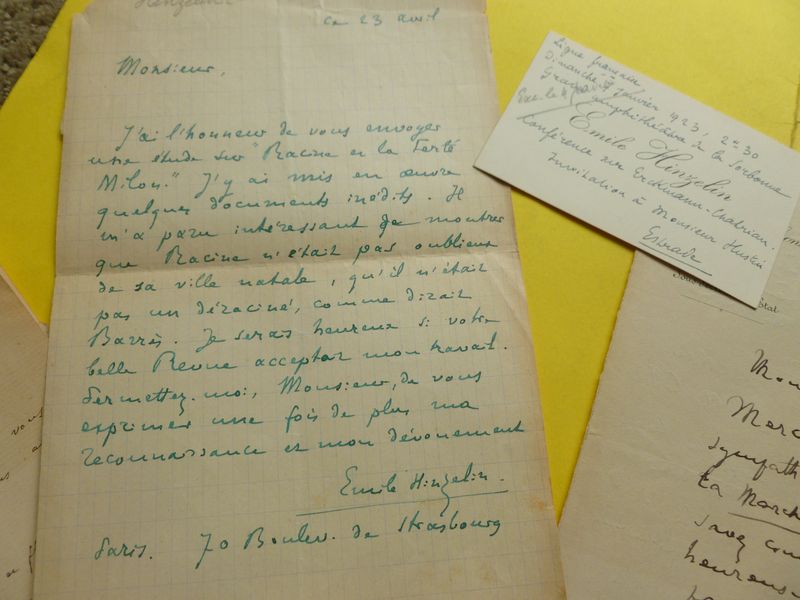 Hinzelin
ce 23 avril
Monsieur,
J'ai l'honneur de vous envoyer
une étude sur "Racine et la Ferté
Milon." J'y ai mis en œuvre
quelques documents inédits. Il
m'a paru intéressant de montrer
que Racine n'était pas oublieux
de sa ville natale, qu'il n'était
pas un déraciné, comme dirait
Barrès. Je serais heureux si votre
belle Revue acceptait mon travail.
Permettez-moi, Monsieur, de vous
exprimer une fois de plus ma
reconnaissance et mon dévouement
Emile Hinzelin.
Paris. 70 Boulev. de Strasbourg
Ligue française
Dimanche 7 Janvier 1923, 2h30
Grand amphithéâtre de la Sorbonne
Emile Hinzelin
Conférence sur Erckmann-Chatrian.
Invitation à Monsieur Hustin
Estrade
Mon
Marc
sympath
La March
savez com
heureus
vous